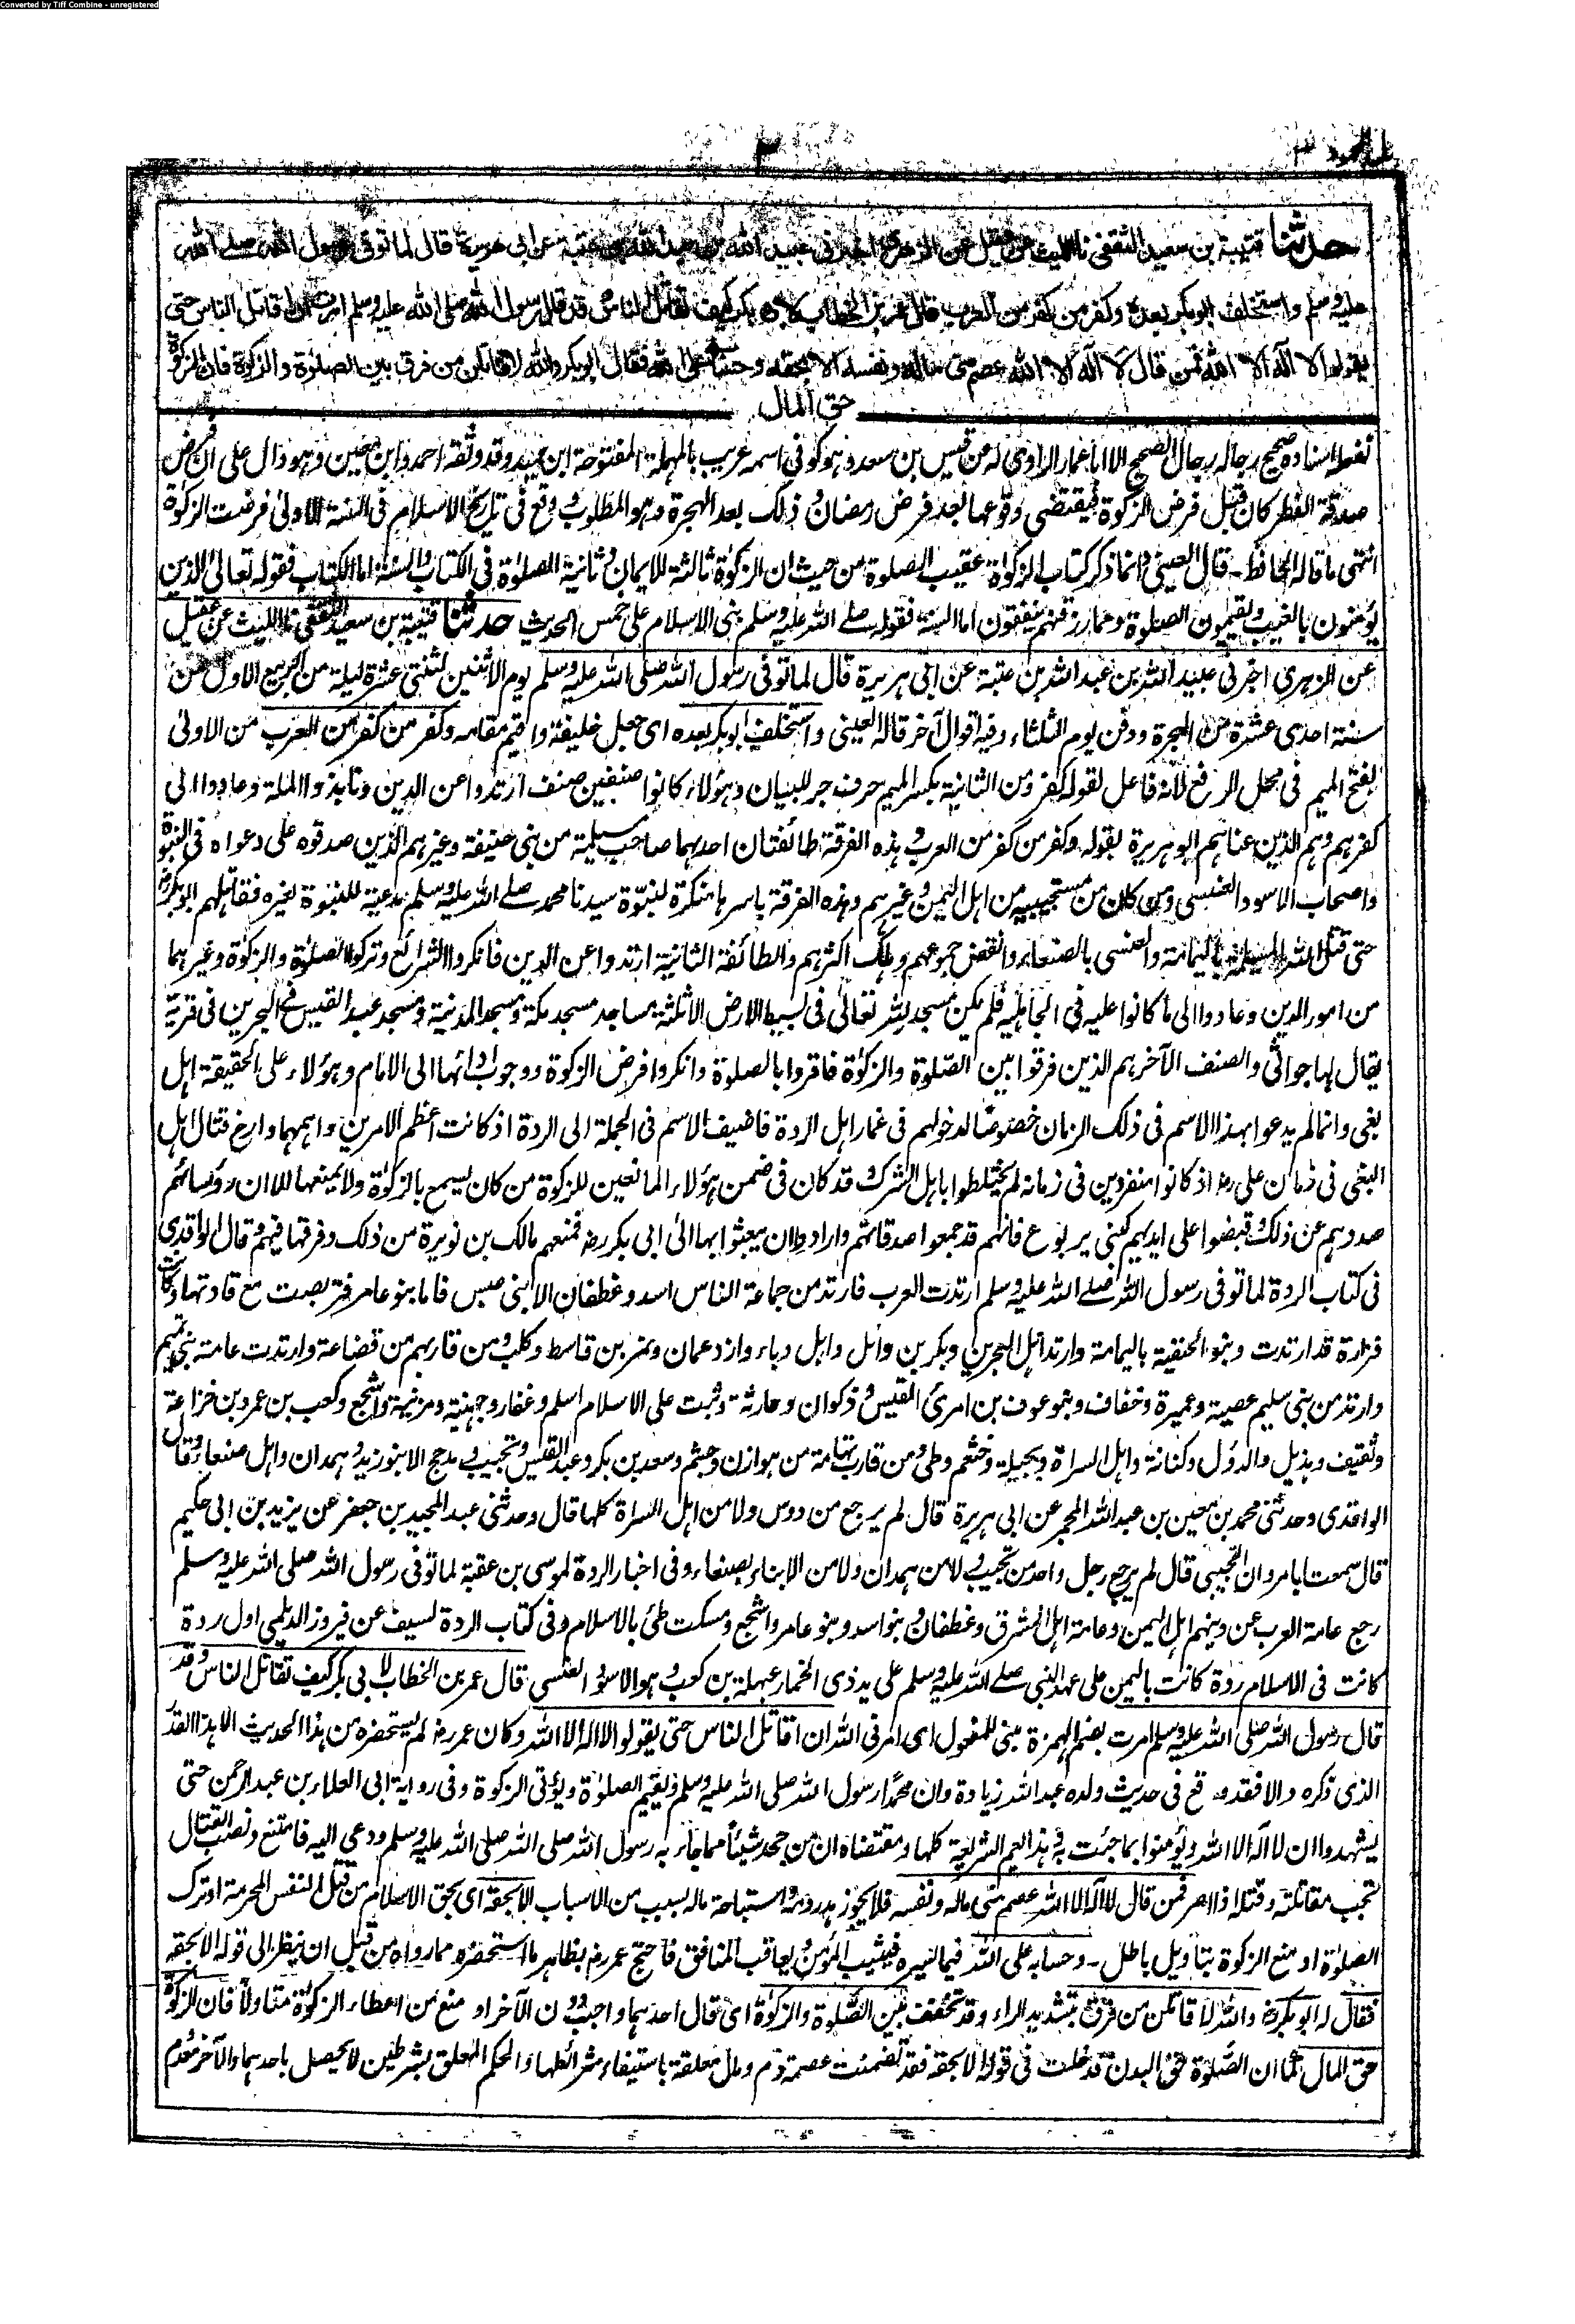 Converted by Tiff Combine - unregistered
٣
حدثنا قتيبة بن سعيد الثقفي نا الليث عن عقيل عن الزهري اخبرني عبيد الله بن عبد الله بن عتبة عن ابي هريرة قال لما توفي رسول الله صلى الله
عليه وسلم واستخلف ابو بكر بعده وكفر من كفر من العرب قال عمر بن الخطاب لابي بكر كيف تقاتل الناس وقد قال رسول الله صلى الله عليه وسلم امرت ان اقاتل الناس حتى
يقولوا لا اله الا الله فمن قال لا اله الا الله عصم منى ماله ونفسه الا بحقه وحسابه على الله فقال ابو بكر والله لاقاتلن من فرق بين الصلوة والزكوة فان الزكوة
حق المال
نفعله اسناده صحيح رجاله رجال الصحيح الا ابا عمار الراوى له عن قيس بن سعد وهو كوفى اسمه عريب بالمهملة المفتوحة ابن حميد وقد وثقه احمد وابن معين وهو دال على ان فرض
صدقة الفطر كان قبل فرض الزكوة فيقتضى وقوعها بعد فرض رمضان وذلك بعد الهجرة وهو المطلوب ووقع فى تاريخ الاسلام فى السنة الاولى فرضت الزكوة
انتهى ما قاله الحافظ - قال العينى وانما ذكر كتاب الزكواة عقيب الصلوة من حيث ان الزكوة ثالثة للايمان وثانية الصلوة فى الكتاب والسنة اما الكتاب فقوله تعالى الذين
يؤمنون بالغيب ويقيمون الصلوة ومما رزقنهم ينفقون اما السنة فقوله صلے الله عليه وسلم بنى الاسلام على خمس الحديث حدثنا قتيبة بن سعيد الثقفى نا الليث عن عقيل
عن الزهرى اخبرنى عبيد الله بن عبد الله بن عتبة عن ابى هريرة قال لما توفى رسول الله صلى الله عليه وسلم يوم الاثنين لثنتى عشرة ليلة من ربيع الاول من
سنة احدى عشرة من الهجرة ودفن يوم الثلثاء وفيه اقوال آخر قاله العينى واستخلف ابو بكر بعده اى جعل خليفة واقيم مقامه وكفر من كفر من العرب من الاولى
بفتح الميم فى محل الرفع لانه فاعل لقوله كفر ومن الثانية بكسر الميم حرف جر للبيان وهؤلاء كانوا صنفين صنف ارتدوا عن الدين ونابذوا الملة وعادوا الى
كفرهم وهم الذين عناهم ابو هريرة بقوله وكفر من كفر من العرب وهذه الفرقة طائفتان احدهما اصحاب مسيلمة من بنى حنيفة وغيرهم الذين صدقوه على دعواه فى النبوة
واصحاب الاسود العنسى ومن كان من مستجيبيه من اهل اليمن وغيرهم وهذه الفرقة باسرها منكرة لنبوة سيدنا محمد صلے الله عليه وسلم مدعية للنبوة لغيره فقاتلهم ابو بكر رض
حتى قتل الله المسيلمة باليمامة والعنسى بالصنعاء وانفض جموعهم وهلك اكثرهم والطائفة الثانية ارتدوا عن الدين فانكروا الشرائع وتركوا الصلوة والزكوة وغيرهما
من امور الدين وعادوا الى ما كانوا عليه فى الجاهلية فلم يكن مسجد لله تعالى فى بسيط الارض الا ثلثة مساجد مسجد مكة ومسجد المدينة ومسجد عبد القيس فى البحرين فى قرية
يقال لها جواثى والصنف الآخر هم الذين فرقوا بين الصلوة والزكوة فاقروا بالصلوة وانكروا فرض الزكوة ووجوب ادائها الى الامام وهؤلاء على الحقيقة اهل
بغى وانما لم يدعوا بهذا الاسم فى ذلك الزمان خصوصا لدخولهم فى غمار اهل الردة فاضيف الاسم فى الجملة الى الردة اذ كانت اعظم الامرين واهمهما وارخ قتال اهل
البغى فى زمان على رض اذ كانوا منفردين فى زمانه لم يختلطوا باهل الشرك وقد كان فى ضمن هؤلاء المانعين للزكوة من كان يسمع بالزكوة ولا يمنعها الا ان رؤسائهم
صدوهم عن ذلك وقبضوا على ايديهم كبنى يربوع فانهم قد جمعوا صدقاتهم وارادوا ان يبعثوا بها الى ابى بكر رض فمنعهم مالك بن نويرة من ذلك وفرقها فيهم وقال الواقدى
فى كتاب الردة لما توفى رسول الله صلے الله عليه وسلم ارتدت العرب فارتد من جماعة الناس اسد وغطفان الا بنى عبس فاما بنو عامر فتربصت مع قادتها وكانت
فزارة قد ارتدت وبنو الحنفية باليمامة وارتد اهل البحرين وبكر بن وائل واهل دباء وازد عمان ونمر بن قاسط وكلب ومن قاربهم من قضاعة وارتدت عامة بنى تميم
وارتد من بنى سليم عصية وعميرة وخفاف وبنو عوف بن امرئ القيس وذكوان وحارثة وثبت على الاسلام اسلم وغفار وجهينة ومزينة واشجع وكعب بن عمرو بن خزاعة
وثقيف وهذيل والدؤل وكنانة واهل السراة وبجيلة وخثعم وطى ومن قارب تهامة من هوازن وجشم وسعد بن بكر وعبد القيس وتجيب ومدحج الا بنو زيد وهمدان واهل صنعاء وقال
الواقدى وحدثنى محمد بن معين بن عبد الله المجمر عن ابى هريرة قال لم يرجع من دوس ولا من اهل السراة كلها قال وحدثنى عبد المجيد بن جعفر عن يزيد بن ابى حكيم
قال سمعت ابا مروان التجيبى قال لم يرجع رجل واحد من تجيب ولا من همدان ولا من الابناء بصنعاء وفى اخبار الردة لموسى بن عقبة لما توفى رسول الله صلى الله عليه وسلم
رجع عامة العرب عن دينهم اهل اليمن وعامة اهل المشرق وغطفان وبنو اسد وبنو عامر واشجع ومسكت طئ بالاسلام وفى كتاب الردة لسيف عن فيروز الديلمى اول ردة
كانت فى الاسلام ردة كانت باليمن على عهد النبى صلے الله عليه وسلم على يد ذى الخمار عبهلة بن كعب وهو الاسود العنسى قال عمر بن الخطاب لابى بكر كيف تقاتل الناس وقد
قال رسول الله صلى الله عليه وسلم امرت بضم الهمزة مبنى للمفعول اى امرنى الله ان اقاتل الناس حتى يقولوا لا اله الا الله وكان عمر رض لم يستحضره من هذا الحديث الا هذا القدر
الذى ذكره والا فقد وقع فى حديث ولده عبد الله زيادة وان محمدا رسول الله صلى الله عليه وسلم ويقيم الصلوة ويؤتى الزكوة وفى رواية ابى العلاء بن عبد الرحمن حتى
يشهدوا ان لا اله الا الله ويؤمنوا بما جئت به وهذا يعم الشريعة كلها ومقتضاه ان من جحد شيئا مما جاء به رسول الله صلى الله صلى الله عليه وسلم ودعى اليه فامتنع ونصب القتال
تجب مقاتلته وقتله اذا اصر فمن قال لا اله الا الله عصم منى ماله ونفسه فلا يجوز هدر دمه واستباحة ماله بسبب من الاسباب الا بحقه اى بحق الاسلام من قتل النفس المحرمة او ترك
الصلوة او منع الزكوة بتاويل باطل - وحسابه على الله فيما يسره فيثيب المؤمن ويعاقب المنافق فاحتج عمر رض بظاهر ما استحضره مما رواه من قبل ان ينظر الى قوله الا بحقه
فقال له ابو بكر رض والله لاقاتلن من فرق بتشديد الراء وقد تخفف بين الصلوة والزكوة اى قال احدهما واجب دون الآخر او منع من اعطاء الزكوة متاولا فان الزكوة
حق المال كما ان الصلوة حق البدن قد دخلت فى قوله الا بحقه فقد تضمنت عصمة دم ومال معلقة باستيفاء شرائطها والحكم المعلق بشرطين لا يحصل باحدهما والآخر معدوم